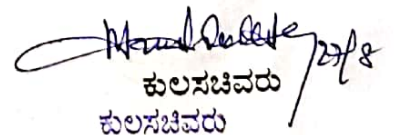 27/8
ಕುಲಸಚಿವರು
ಕುಲಸಚಿವರು